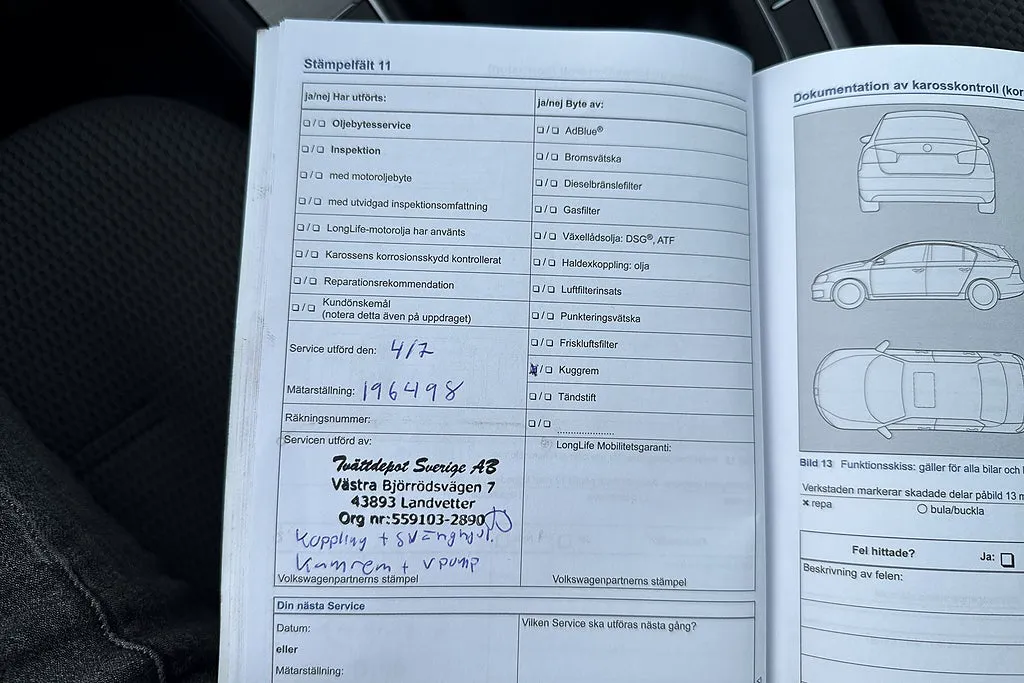 Stämpelfält 11
ja/nej Har utförts:
❑ / ❑ Oljebytesservice
❑ / ❑ Inspektion
❑ / ❑ med motoroljebyte
❑ / ❑ med utvidgad inspektionsomfattning
❑ / ❑ LongLife-motorolja har använts
❑ / ❑ Karossens korrosionsskydd kontrollerat
❑ / ❑ Reparationsrekommendation
❑ / ❑ Kundönskemål
(notera detta även på uppdraget)
Service utförd den: 4/7
Mätarställning: 196498
Räkningsnummer:
Servicen utförd av:
Tvättdepot Sverige AB
Västra Björrödsvägen 7
43893 Landvetter
Org nr:559103-2890
Koppling + svänghjul.
Kamrem + vpump
Volkswagenpartnerns stämpel
ja/nej Byte av:
❑ / ❑ AdBlue®
❑ / ❑ Bromsvätska
❑ / ❑ Dieselbränslefilter
❑ / ❑ Gasfilter
❑ / ❑ Växellådsolja: DSG®, ATF
❑ / ❑ Haldexkoppling: olja
❑ / ❑ Luftfilterinsats
❑ / ❑ Punkteringsvätska
❑ / ❑ Friskluftsfilter
☒ / ❑ Kuggrem
❑ / ❑ Tändstift
❑ / ❑ ..................
LongLife Mobilitetsgaranti:
Volkswagenpartnerns stämpel
Din nästa Service
Datum:
eller
Mätarställning:
Vilken Service ska utföras nästa gång?
Dokumentation av karosskontroll (kor
Bild 13 Funktionsskiss: gäller för alla bilar och
Verkstaden markerar skadade delar påbild 13 m
× repa
○ bula/buckla
Fel hittade?
Ja: ❑
Beskrivning av felen: